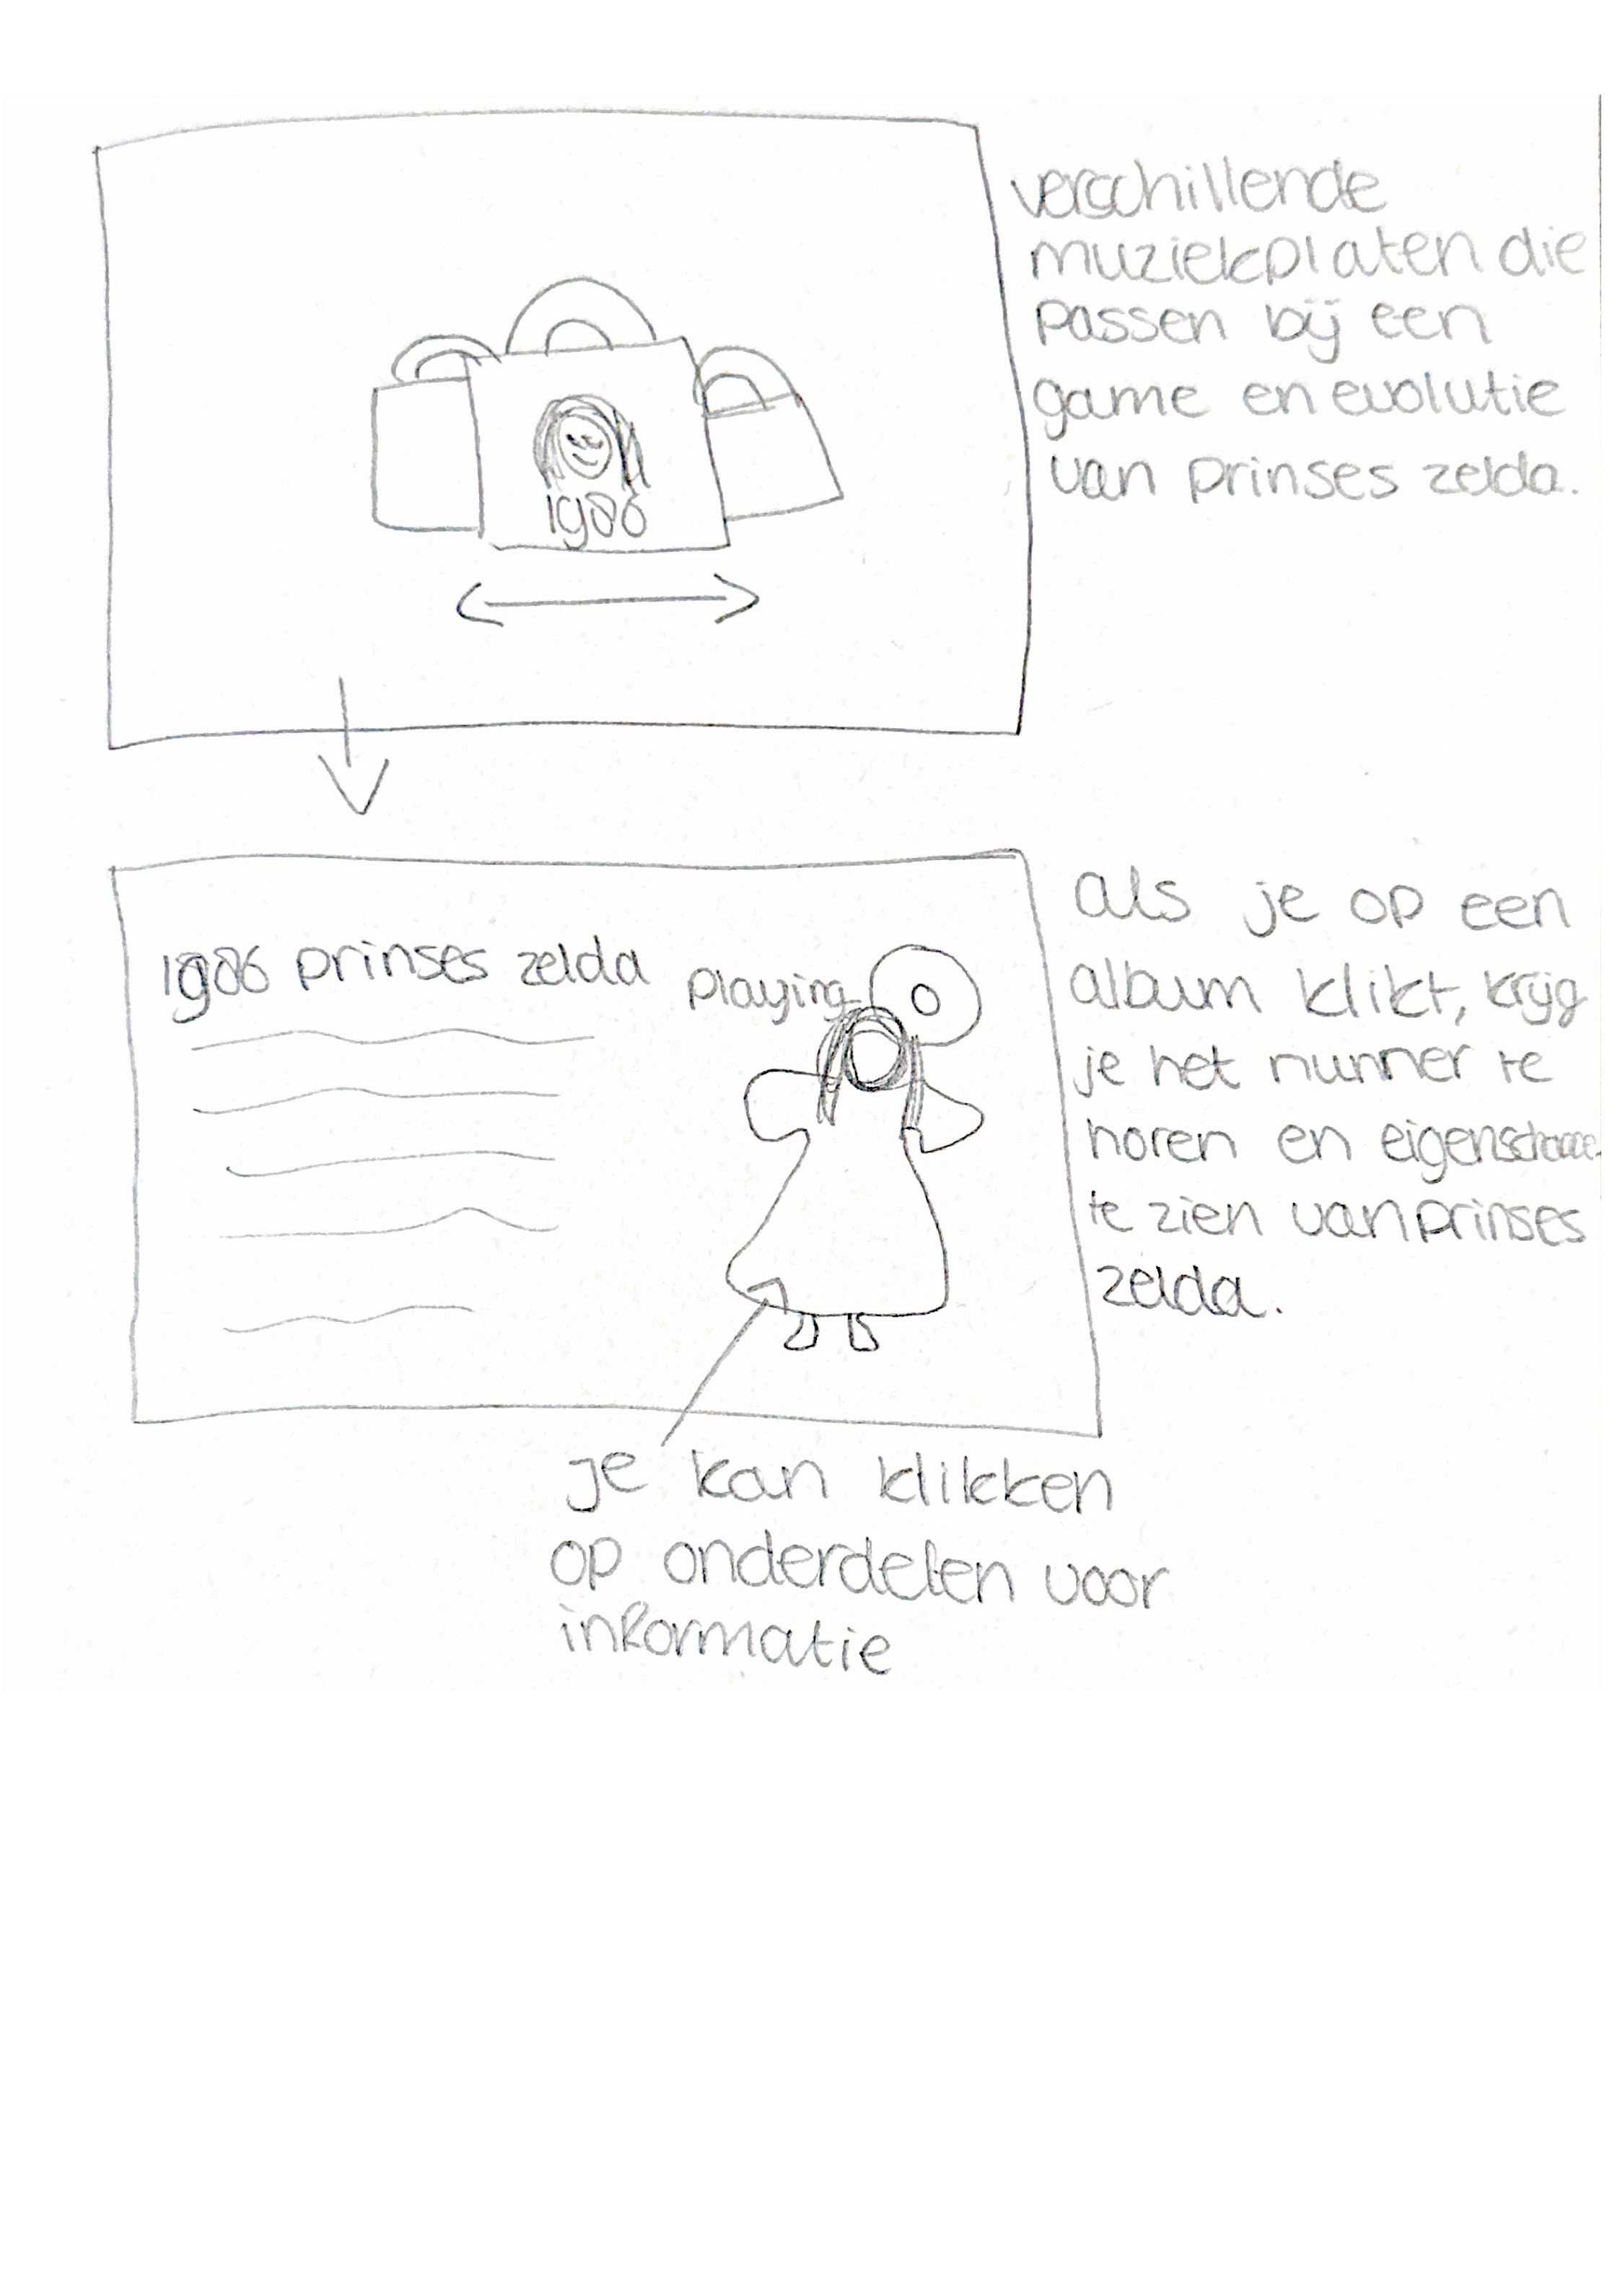 verschillende
muziekplaten die
passen bij een
game en evolutie
van prinses zelda.
1986
1986 prinses zelda
playing
als je op een
album klikt, krijg
je het nummer te
horen en
te zien van prinses
zelda.
je kan klikken
op onderdelen voor
informatie